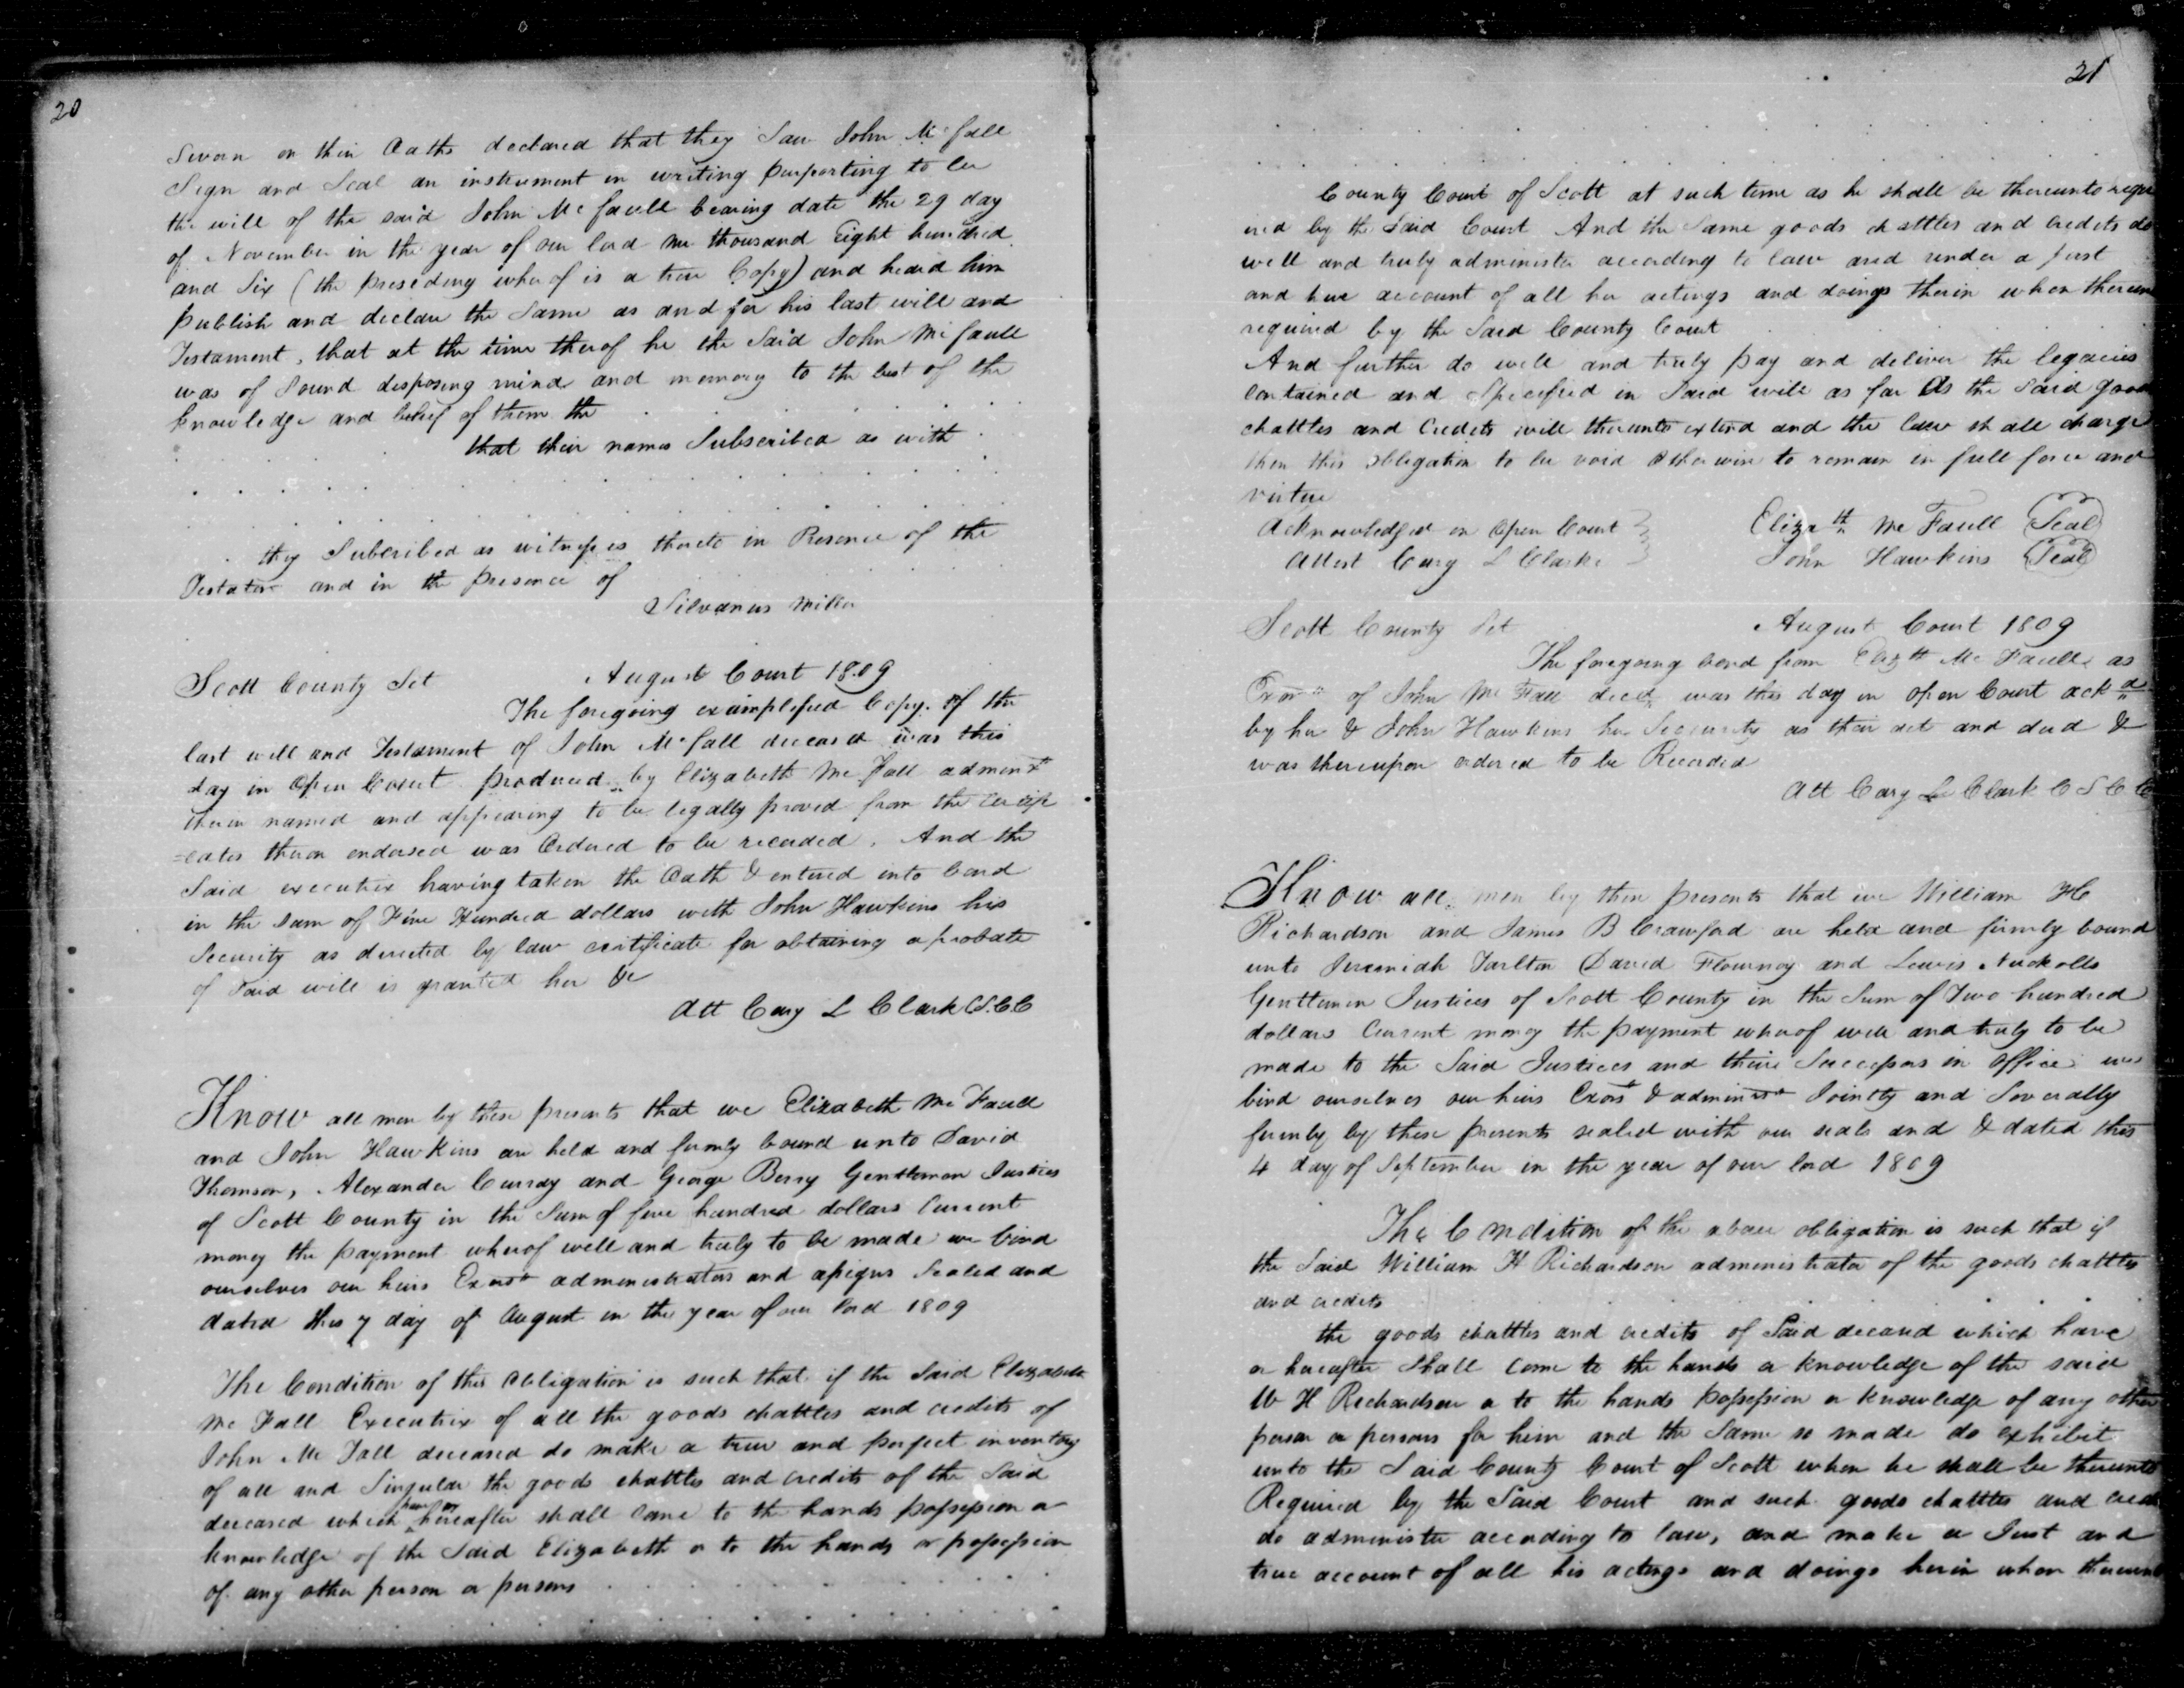 20
Sworn on their Oaths declared that they Saw John Mcfall
Sign and Seal an instrument in writing purporting to be
the will of the said John Mc faull bearing date the 29 day
of November in the year of our lord one thousand Eight hundred
and Six (the preseding wherof is a true Copy) and heard him
publish and declare the Same as and for his last will and
Testament, that at the time therof he the Said John Mcfaull
was of Sound disposing mind and memory to the best of the
knowledge and belief of them the
that their names Subscribed as with
they Subcribed as witnesses thereto in Presence of the
Testator and in the presence of
Silvanus Miller
Scott County Sct August Court 1809
The foregoing examplified Copy of the
last will and Testament of John Mcfall deceased was this
day in Open Court produced by Elizabeth Mc Fall
therein named and appearing to be legally proved from the certifi
=cates theron endorsed was Ordered to be recorded. And the
Said executrix having taken the Oath & entered into bond
in the sum of Five Hundred dollars with John Hawkins his
Security as directed by law certificate for obtaining a probate
of Said will is granted her &c
Att Cary L Clark C.S.C.C
Know all men by these presents that we Elizabeth Mc Faull
and John Hawkins are held and firmly bound unto David
Thomson, Alexander Curray and George Berry Gentlemen Justices
of Scott County in the Sum of five hundred dollars Current
money the payment wherof well and truly to be made we bind
ourselves our heirs Exors administrators and assigns Sealed and
dated this 7 day of August in the year of our lord 1809
The Condition of this Obligation is such that if the Said Elizabeth
Mc Fall Executrix of all the goods chattles and credits of
John Mc Fall deceased do make a true and perfect inventory
of all and Singular the goods chattles and credits of the Said
deceased which have or hereafter shall come to the hands possession or
knowledge of the Said Elizabeth or to the hands or possession
of any other person or persons
21
County Court of Scott at such time as he shall be thereunto requ
ired by the Said Court And the Same goods chattles and credits do
well and truly administer according to law and render a just
and true account of all her actings and doings therin when therun
required by the Said County Court
And further do well and truly pay and deliver the legacies
Contained and Specified in Said will as far As the Said goods
chattles and Credits will thereunto extend and the law shall charge
then this obligation to be void Otherwise to remain in full force and
virtue
Acknowledged in Open Court Elizath Mc Faull Seal
Attest Cary L Clarke John Hawkins Seal
Scott County Sct August Court 1809
The foregoing bond from Elizth Mc Faull as
of John Mc Fall decd was this day in open Court ackd
by her & John Hawkins her Security as their act and deed &
was thereupon ordered to be Recorded
Att Cary L Clark C S C C
Know all men by these presents that we William H
Richardson and James B Crawford are held and firmly bound
unto Jeremiah Tarlton David Flournoy and Lewis Nuckolls
Gentlemen Justices of Scott County in the Sum of Two hundred
dollars Current money the payment wherof well and truly to be
made to the Said Justices and their Successors in Office we
bind ourselves our heirs Exors & Jointly and Severally
firmly by these presents sealed with our seals and & dated this
4 day of September in the year of our lord 1809
The Condition of the above obligation is such that if
the Said William H Richardson administrator of the goods chattles
and credits
the goods chattles and credits of Said deceased which have
or hereafter Shall come to the hands or knowledge of the said
W H Richardson or to the hands possession or knowledge of any other
person or persons for him and the Same so made do exhibit
unto the Said County Court of Scott when he shall be thereunto
Required by the Said Court and such goods chattles and cred
do administer according to law, and make a Just and
true account of all his actings and doings herin when thereunt